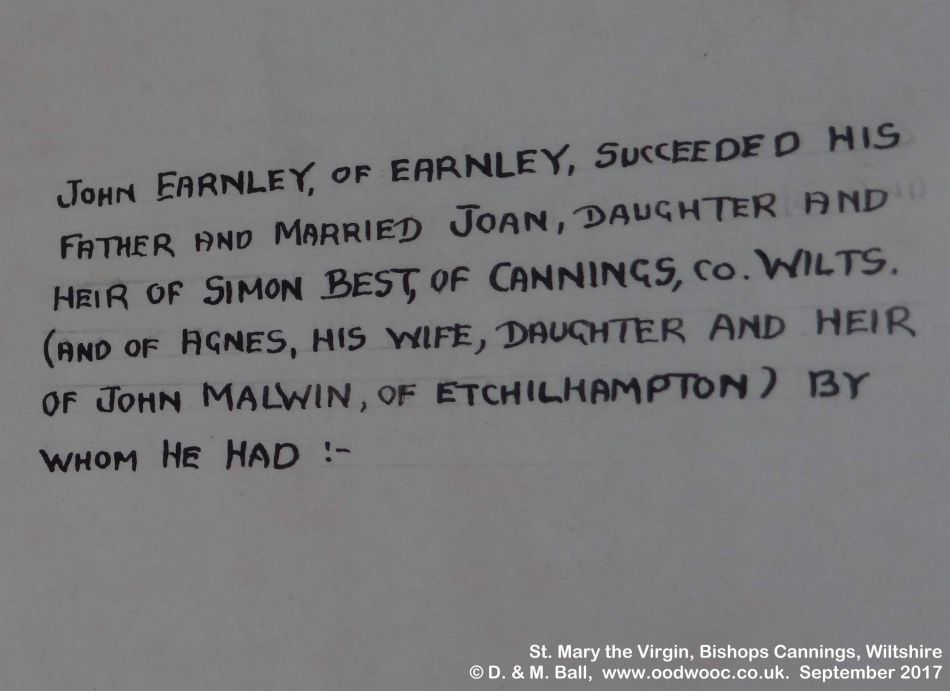 JOHN EARNLEY, OF EARNLEY, SUCCEEDED HIS
FATHER AND MARRIED JOAN, DAUGHTER AND
HEIR OF SIMON BEST, OF CANNINGS, CO. WILTS.
(AND OF AGNES, HIS WIFE, DAUGHTER AND HEIR
OF JOHN MALWIN, OF ETCHILHAMPTON) BY
WHOM HE HAD :-
St. Mary the Virgin, Bishops Cannings, Wiltshire
© D. & M. Ball, www.oodwooc.co.uk. September 2017